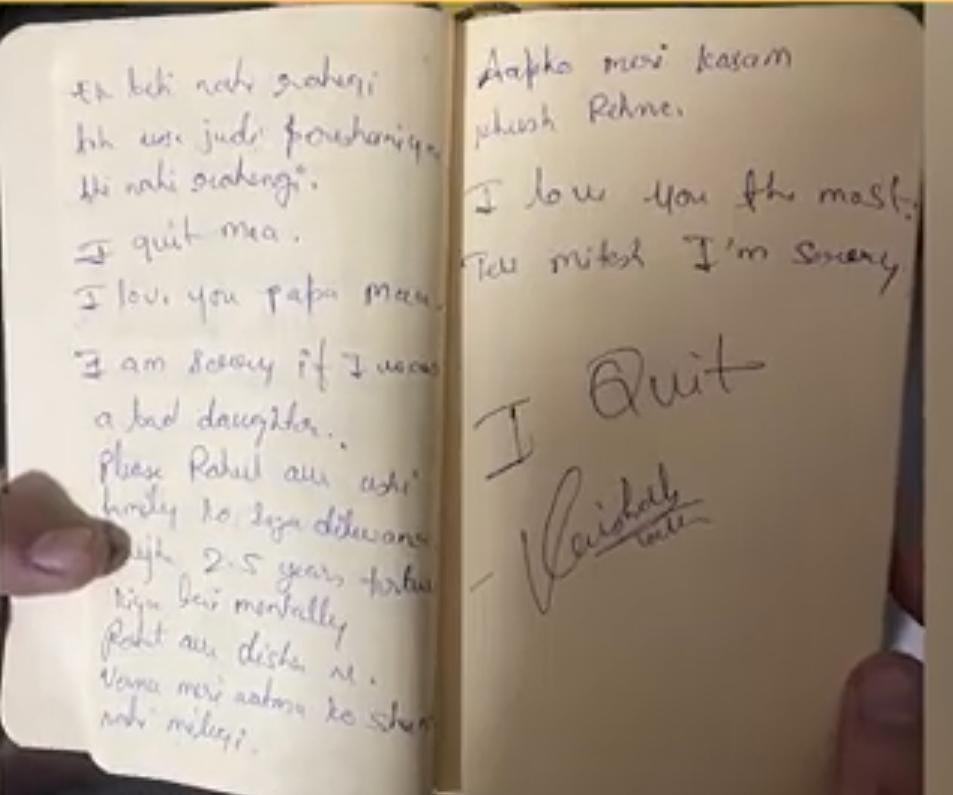 Ek beti nahi rahegi
toh usse judi pareshaniya
bhi nahi rahengi.
I quit maa.
I love you papa maa.
I am sorry if I was
a bad daughter..
Please Rahul aur uski
family ko saza dilwana
2.5 years
kiya hai mentally
aur disha ne.
Verna meri aatma ko
nahi milegi.
Aapko meri kasam
khush Rehna.
I love you the most.
Tell mitesh I'm sorry
I Quit
- Vaishali